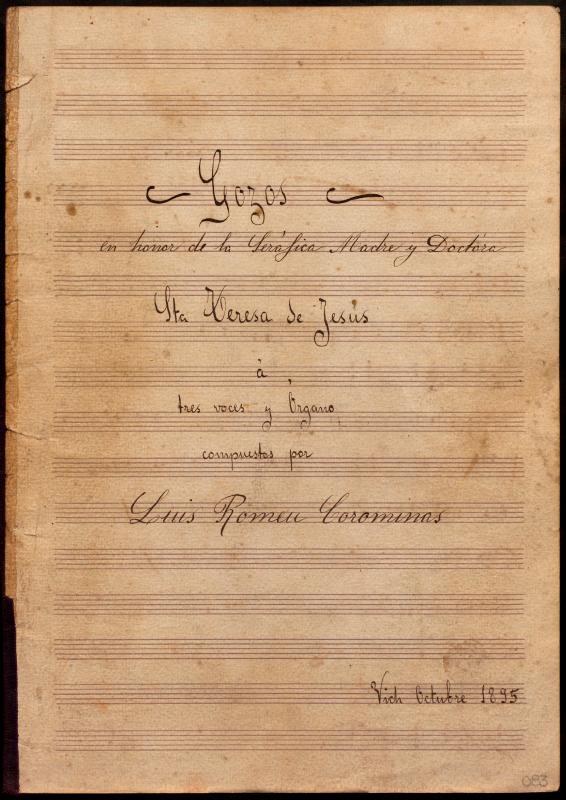 Gozos
en honor de la Seráfica Madre y Doctora
Sta Teresa de Jesús
á
tres voces y Órgano,
compuestos por
Luis Romeu Corominas
Vich Octubre 1895
083